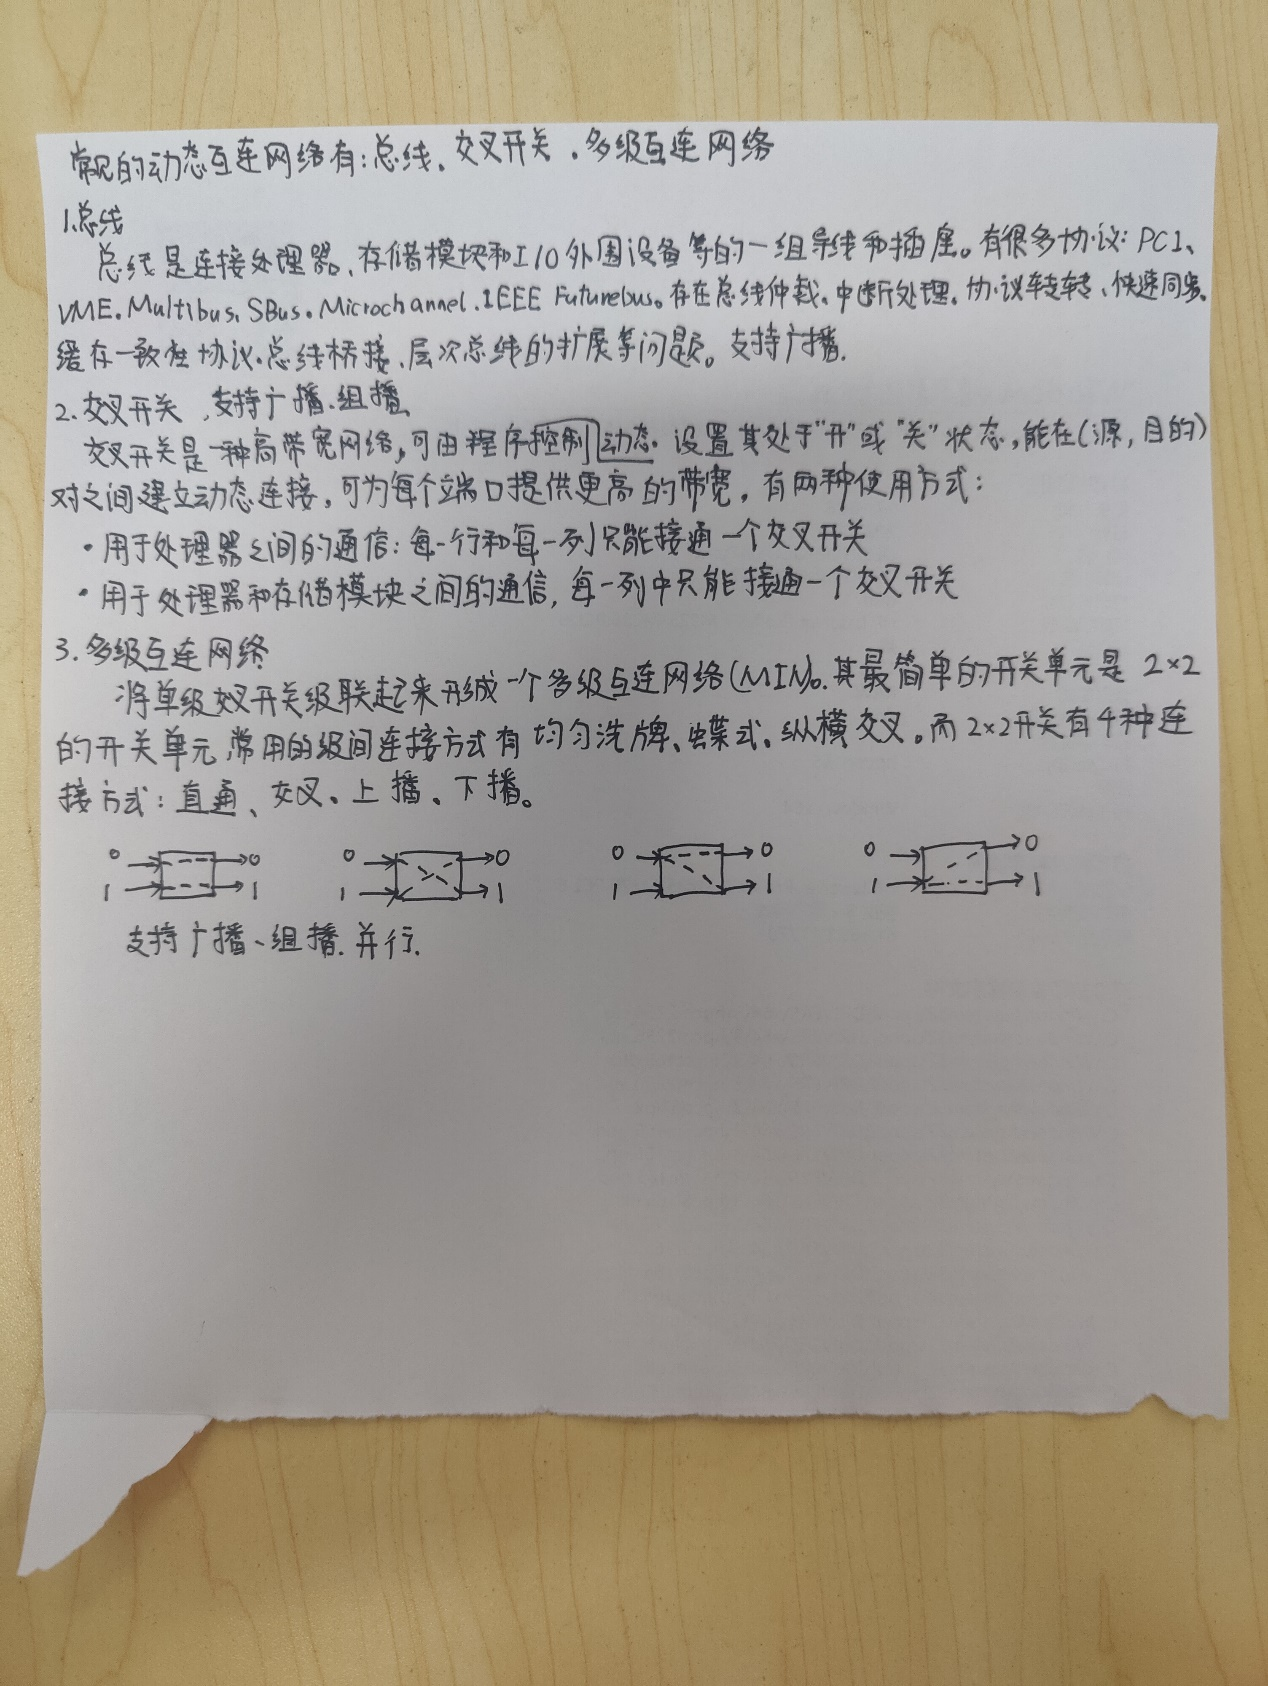 常见的动态互连网络有:总线、交叉开关、多级互连网络
1.总线
总线是连接处理器、存储模块和I/O外围设备等的一组导线和插座。有很多协议:PCI、
VME、Multibus、SBus、Microchannel、IEEE Futurebus。存在总线仲裁、中断处理、协议转转、快速同步、
缓存一致性协议、总线桥接、层次总线的扩展等问题。支持广播.
2.交叉开关,支持广播、组播
交叉开关是一种高带宽网络,可由程序控制动态 设置其处于"开"或"关"状态,能在(源,目的)
对之间建立动态连接,可为每个端口提供更高的带宽,有两种使用方式:
·用于处理器之间的通信:每一行和每一列只能接通一个交叉开关
·用于处理器和存储模块之间的通信,每一列中只能接通一个交叉开关
3.多级互连网络
将单级交叉开关级联起来形成一个多级互连网络(MIN)。其最简单的开关单元是2×2
的开关单元,常用的级间连接方式有均匀洗牌、蝶式、纵横交叉。而2×2开关有4种连
接方式:直通、交叉、上播、下播。
0 0 0 0 0 0 0 0
1 1 1 1 1 1 1 1
支持广播、组播.并行.